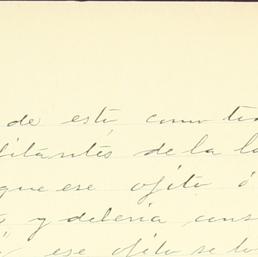 de esté como
litantés de la
que ese ojito ó
y deberia
ese ojito se